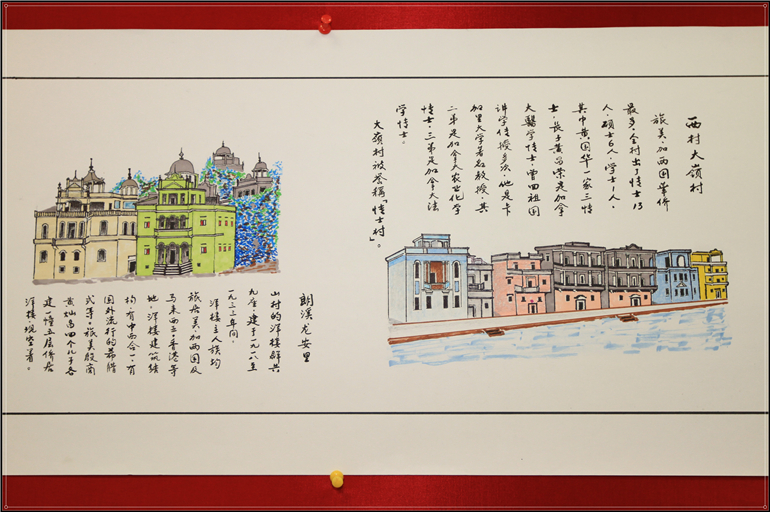 西村大嶺村
旅美、加两国华侨
最多,全村出了博士13
人,硕士6人,学士1人,
其中黄国华一家三博
士,长子黄昌荣是加拿
大醫学博士,曾回祖国
讲学传授多次,他是卡
加里大学著名教授,其
二弟是加拿大农业化学
博士,三弟是加拿大法
学博士。
大嶺村被誉稱「博士村」。
朗溪龙安里
山村的洋楼群共
九座建于一九一八至
一九三三年间,
洋楼主人族均
旅居美、加两国及
马来西亚、香港等
地。洋楼建筑结
构有中西合一,有
国外流行的希腊
式等。旅美殷商
黄灿四个儿子各
建一幢五层侨居
洋楼现